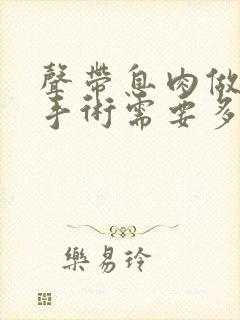 聲帶息肉做
手術需要多
樂易玲